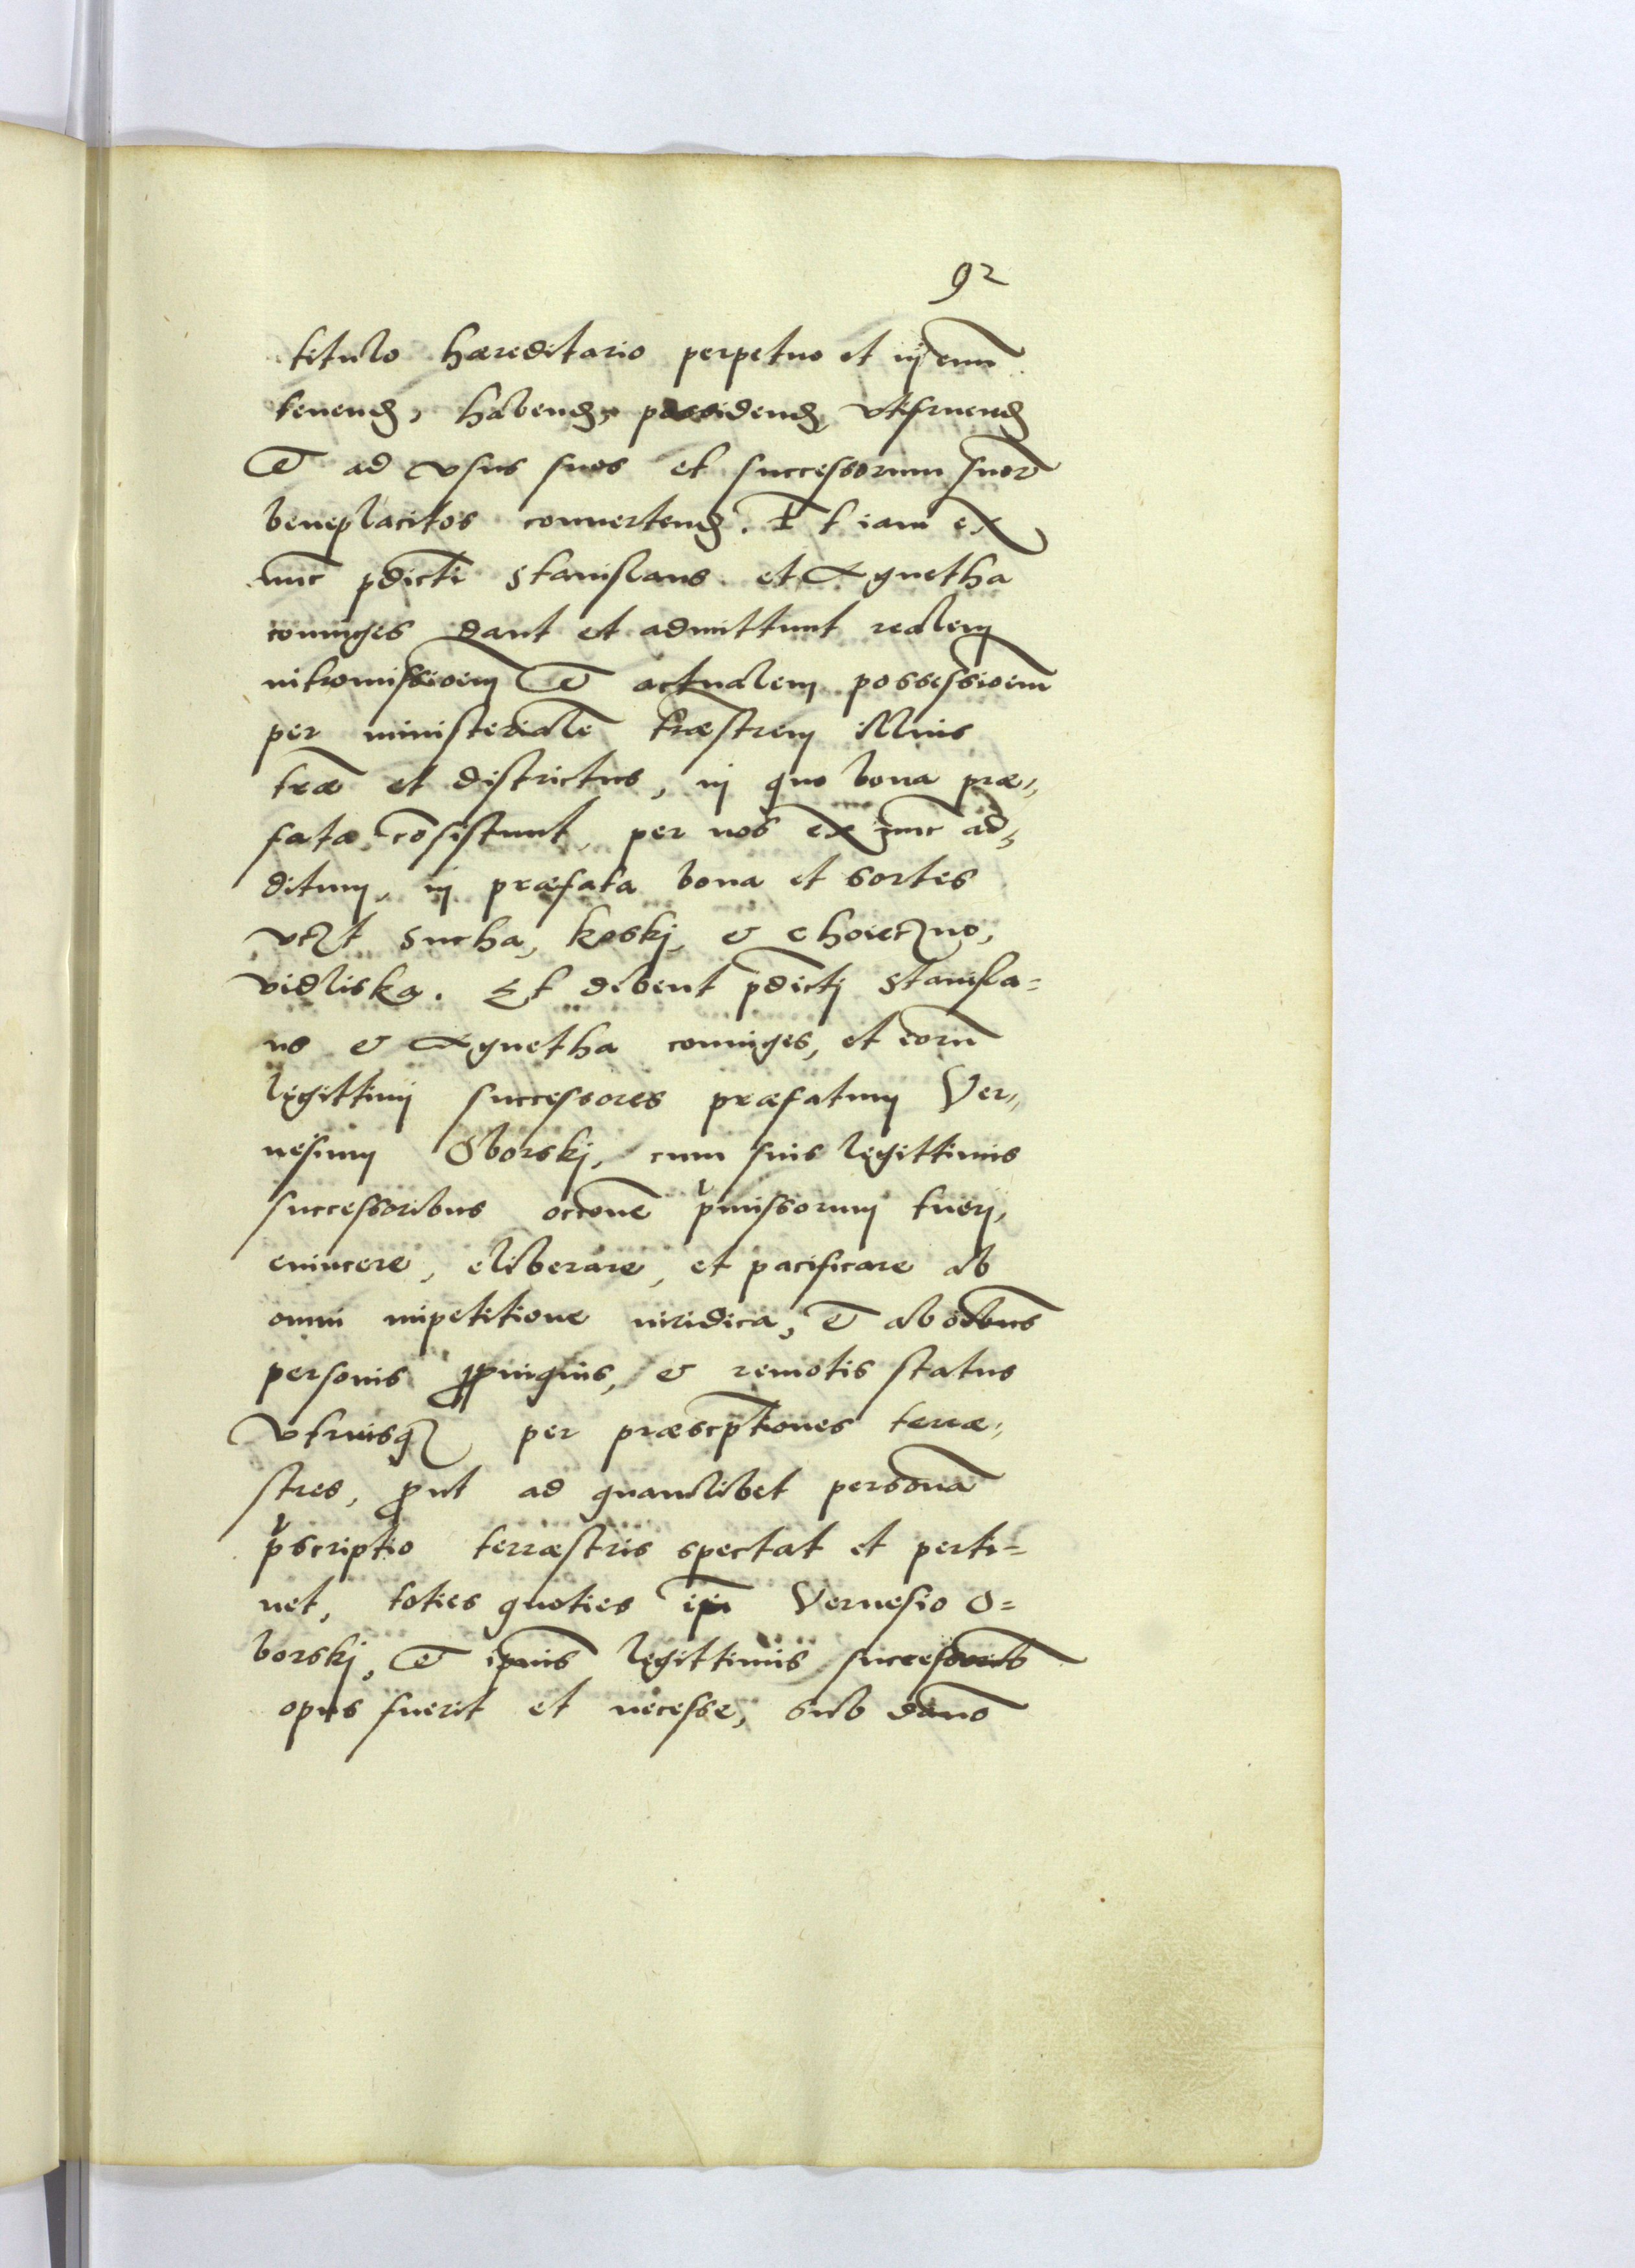 92
titulo hæreditario perpetuo et in ævum
tenend, habend, possidend utifruend
et ad usus suos et successorum suor
beneplacitos convertend. Et iam ex
nunc pdicti Stanislaus et Agnetha
coniuges dant et admittunt realem
intromissioem et actualem possessioem
per ministeriale træstrem illius
træ et districtus, in quo bona præ-
fata cosistunt, per nos ex nunc ad-
ditum, in præfata bona et sortes
utzt Sucha, koski, & Choieczno,
vidliska. Et debent pdicti Stanisla=
us & Agnetha coniuges, et eoru
legittimi successores præfatum Ver-
nesium Oborski, cum suis legittimis
successoribus occone pmissorum tueri,
evincere, eliberare, et pacificare ab
omni impetitione iuridica, et ab oibus
personis ppinquis, & remotis status
utriusq per præscptiones terræ-
stres, put ad quamlibet persona
pscriptio terræstris spectat et perti=
net, toties quoties ipi Vernesio O=
borski, et ipius legittimis successorib
opus fuerit et necesse, sub dano